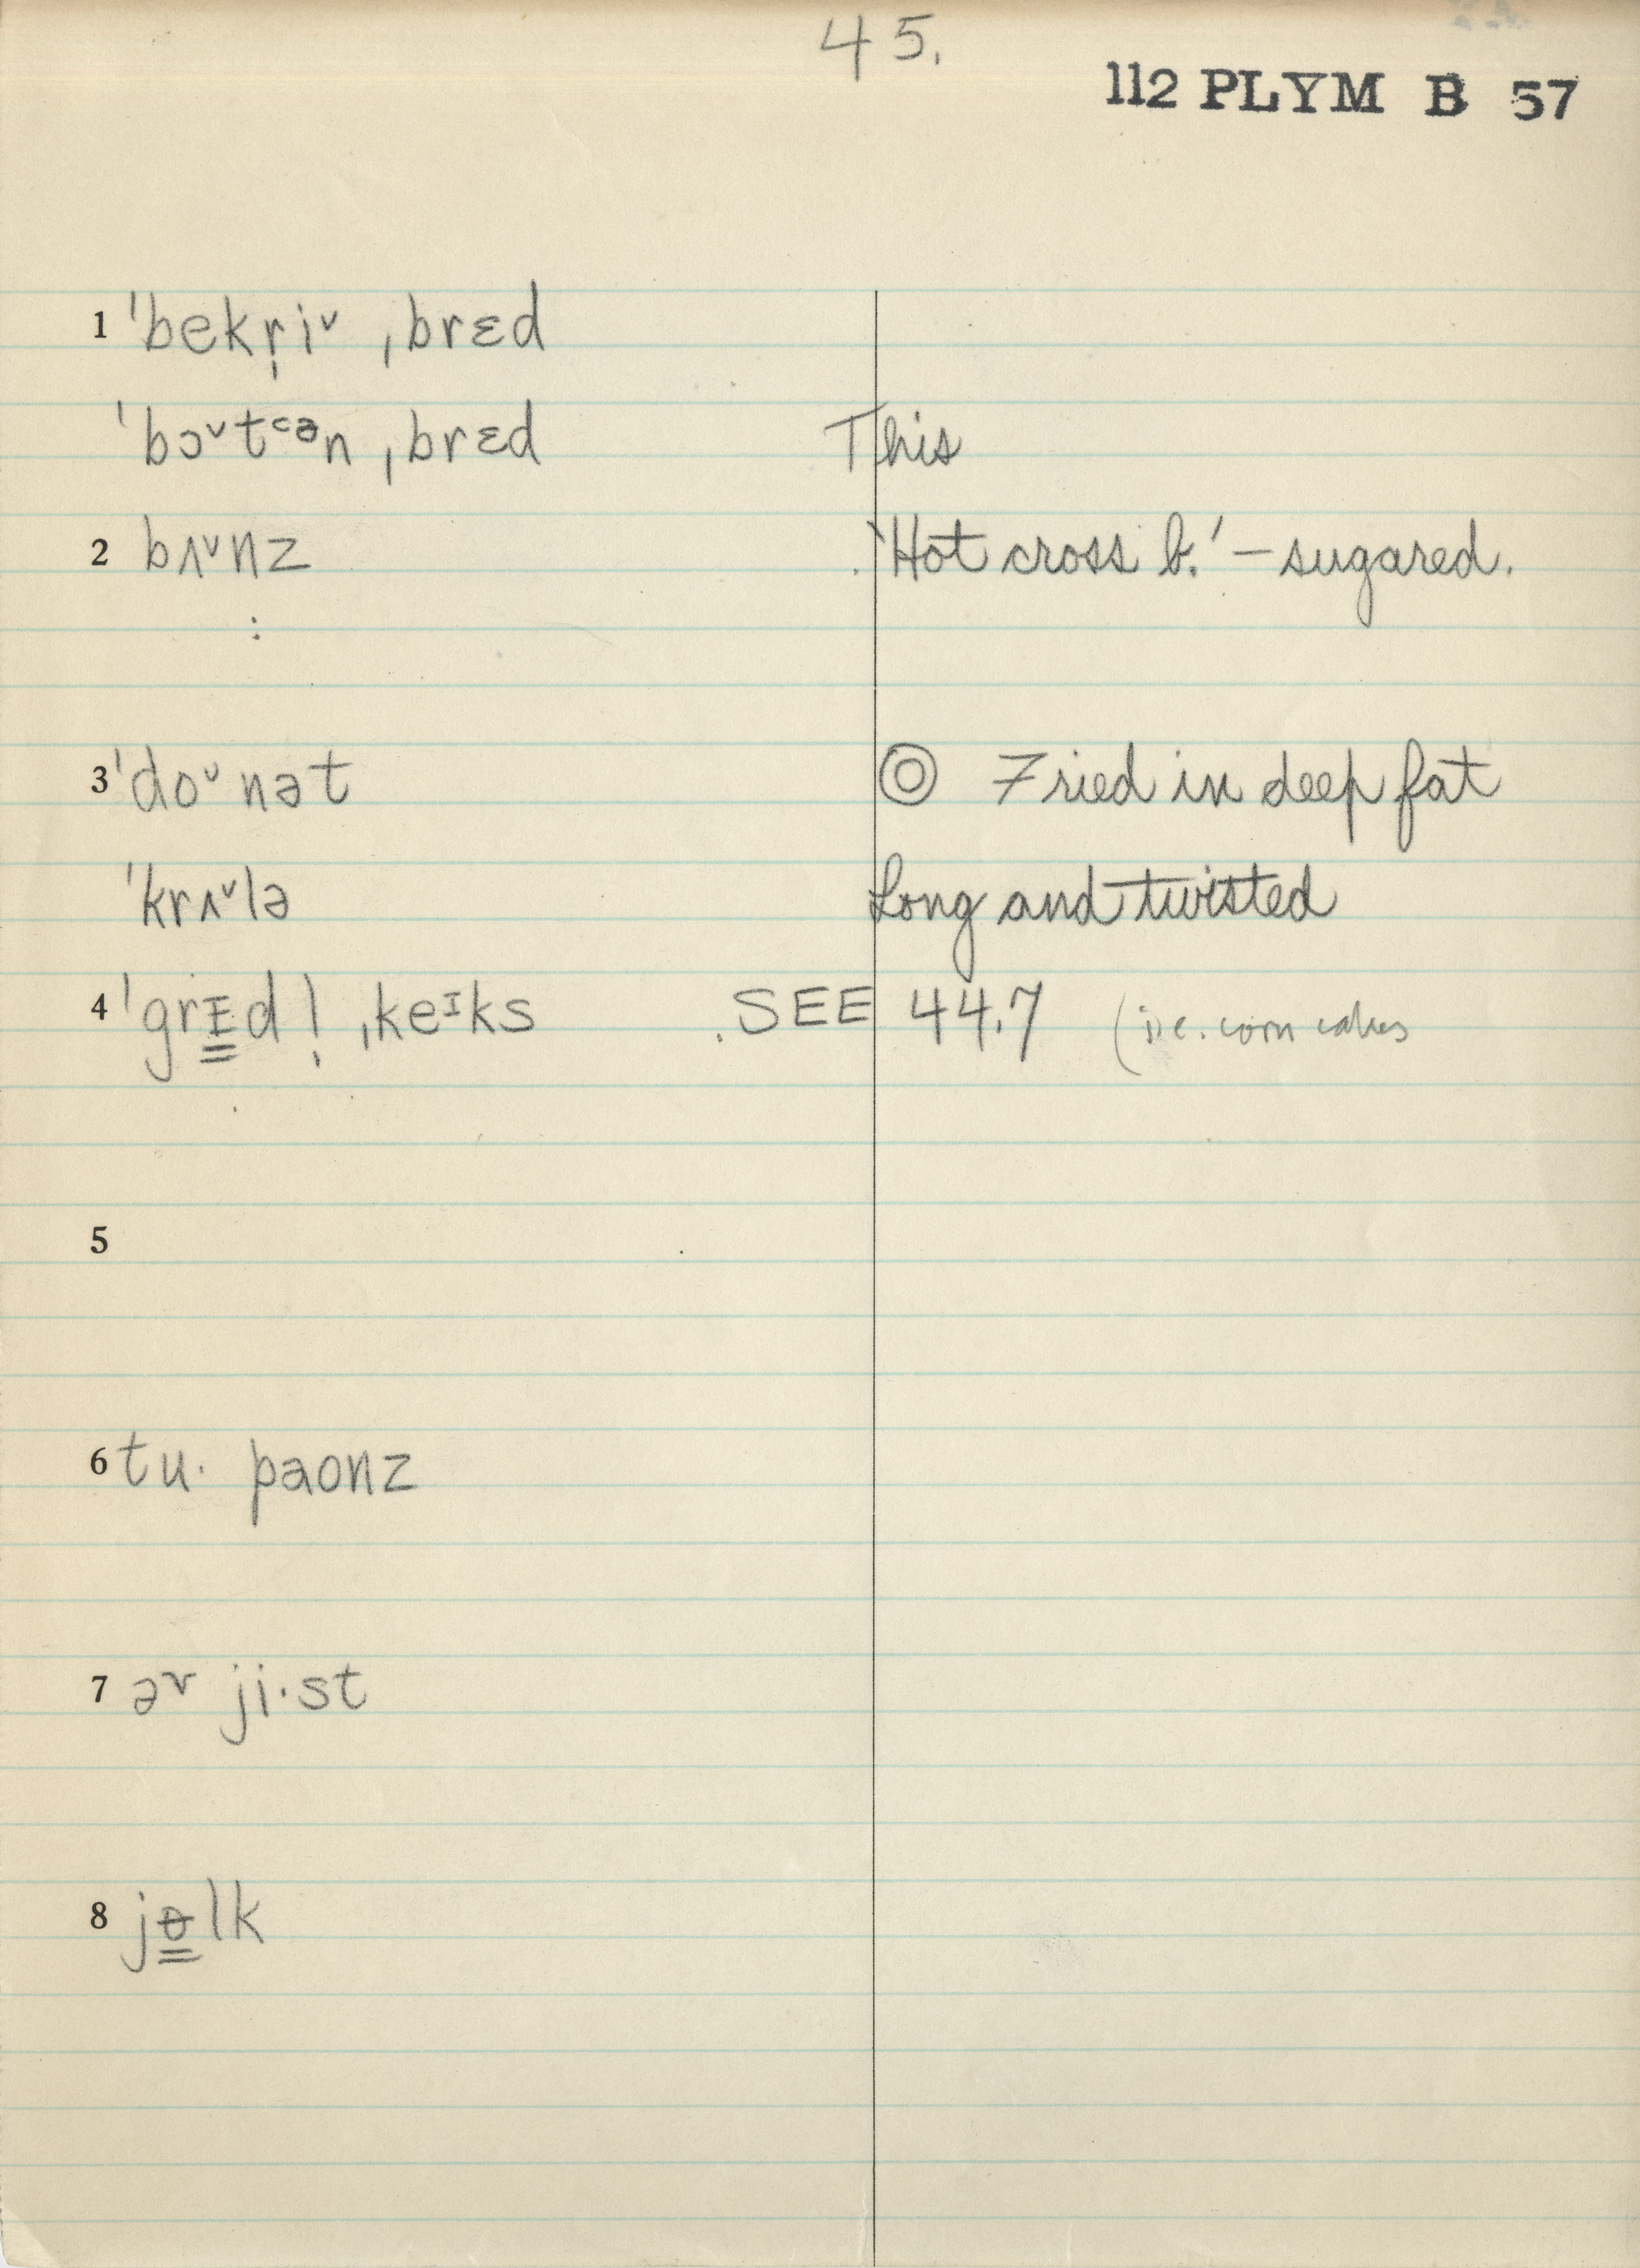 45.
112 PLYM B 57
1 ˈbekr̩iˇ ˌbrɛd
ˈbɔˇtᶜᵊn ˌbrɛd This
2 bʌˇnz 'Hot cross b.' – sugared.
:
3 ˈdoˇnət ◎ Fried in deep fat
ˈkrʌˇlə Long and twisted
4 ˈgrɪ̳dl̩ ˌkeᶦks SEE 44.7 (i.e. corn cakes
5
6 tu· paonz
7 ər ji·st
8 jɵ̳lk